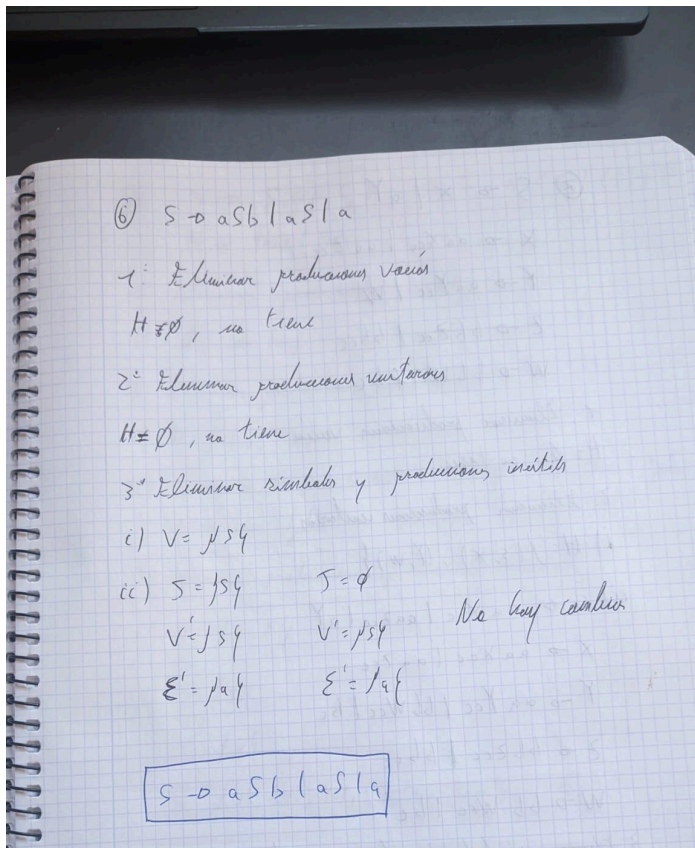 ⑥ S → aSb | aS | a
1º Eliminar producciones vacías
H = ∅, no tiene
2º Eliminar producciones unitarias
H = ∅, no tiene
3º Eliminar símbolos y producciones inútiles
i) V = {S}
ii) J = {S} J = ∅
V' = {S} V' = {S} No hay cambios
Σ' = {a} Σ' = {a}
S → aSb | aS | a